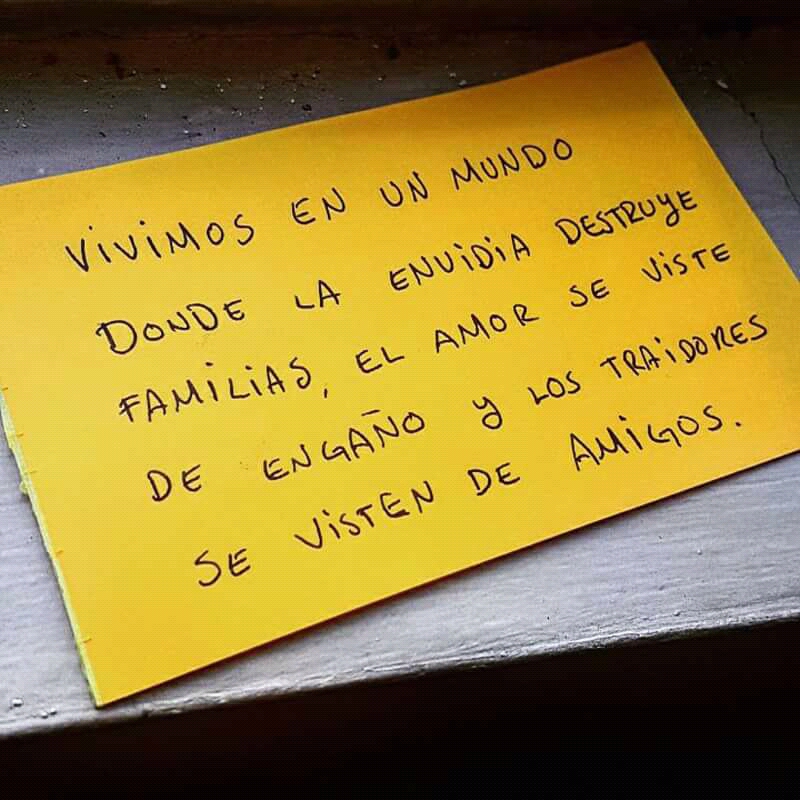 ViViMOS EN UN MUNDO
DONDE LA ENViDiA DESTRUYE
FAMiLiAS, EL AMOR SE ViSTE
DE ENGAÑO Y LOS TRAiDORES
SE ViSTEN DE AMiGOS.